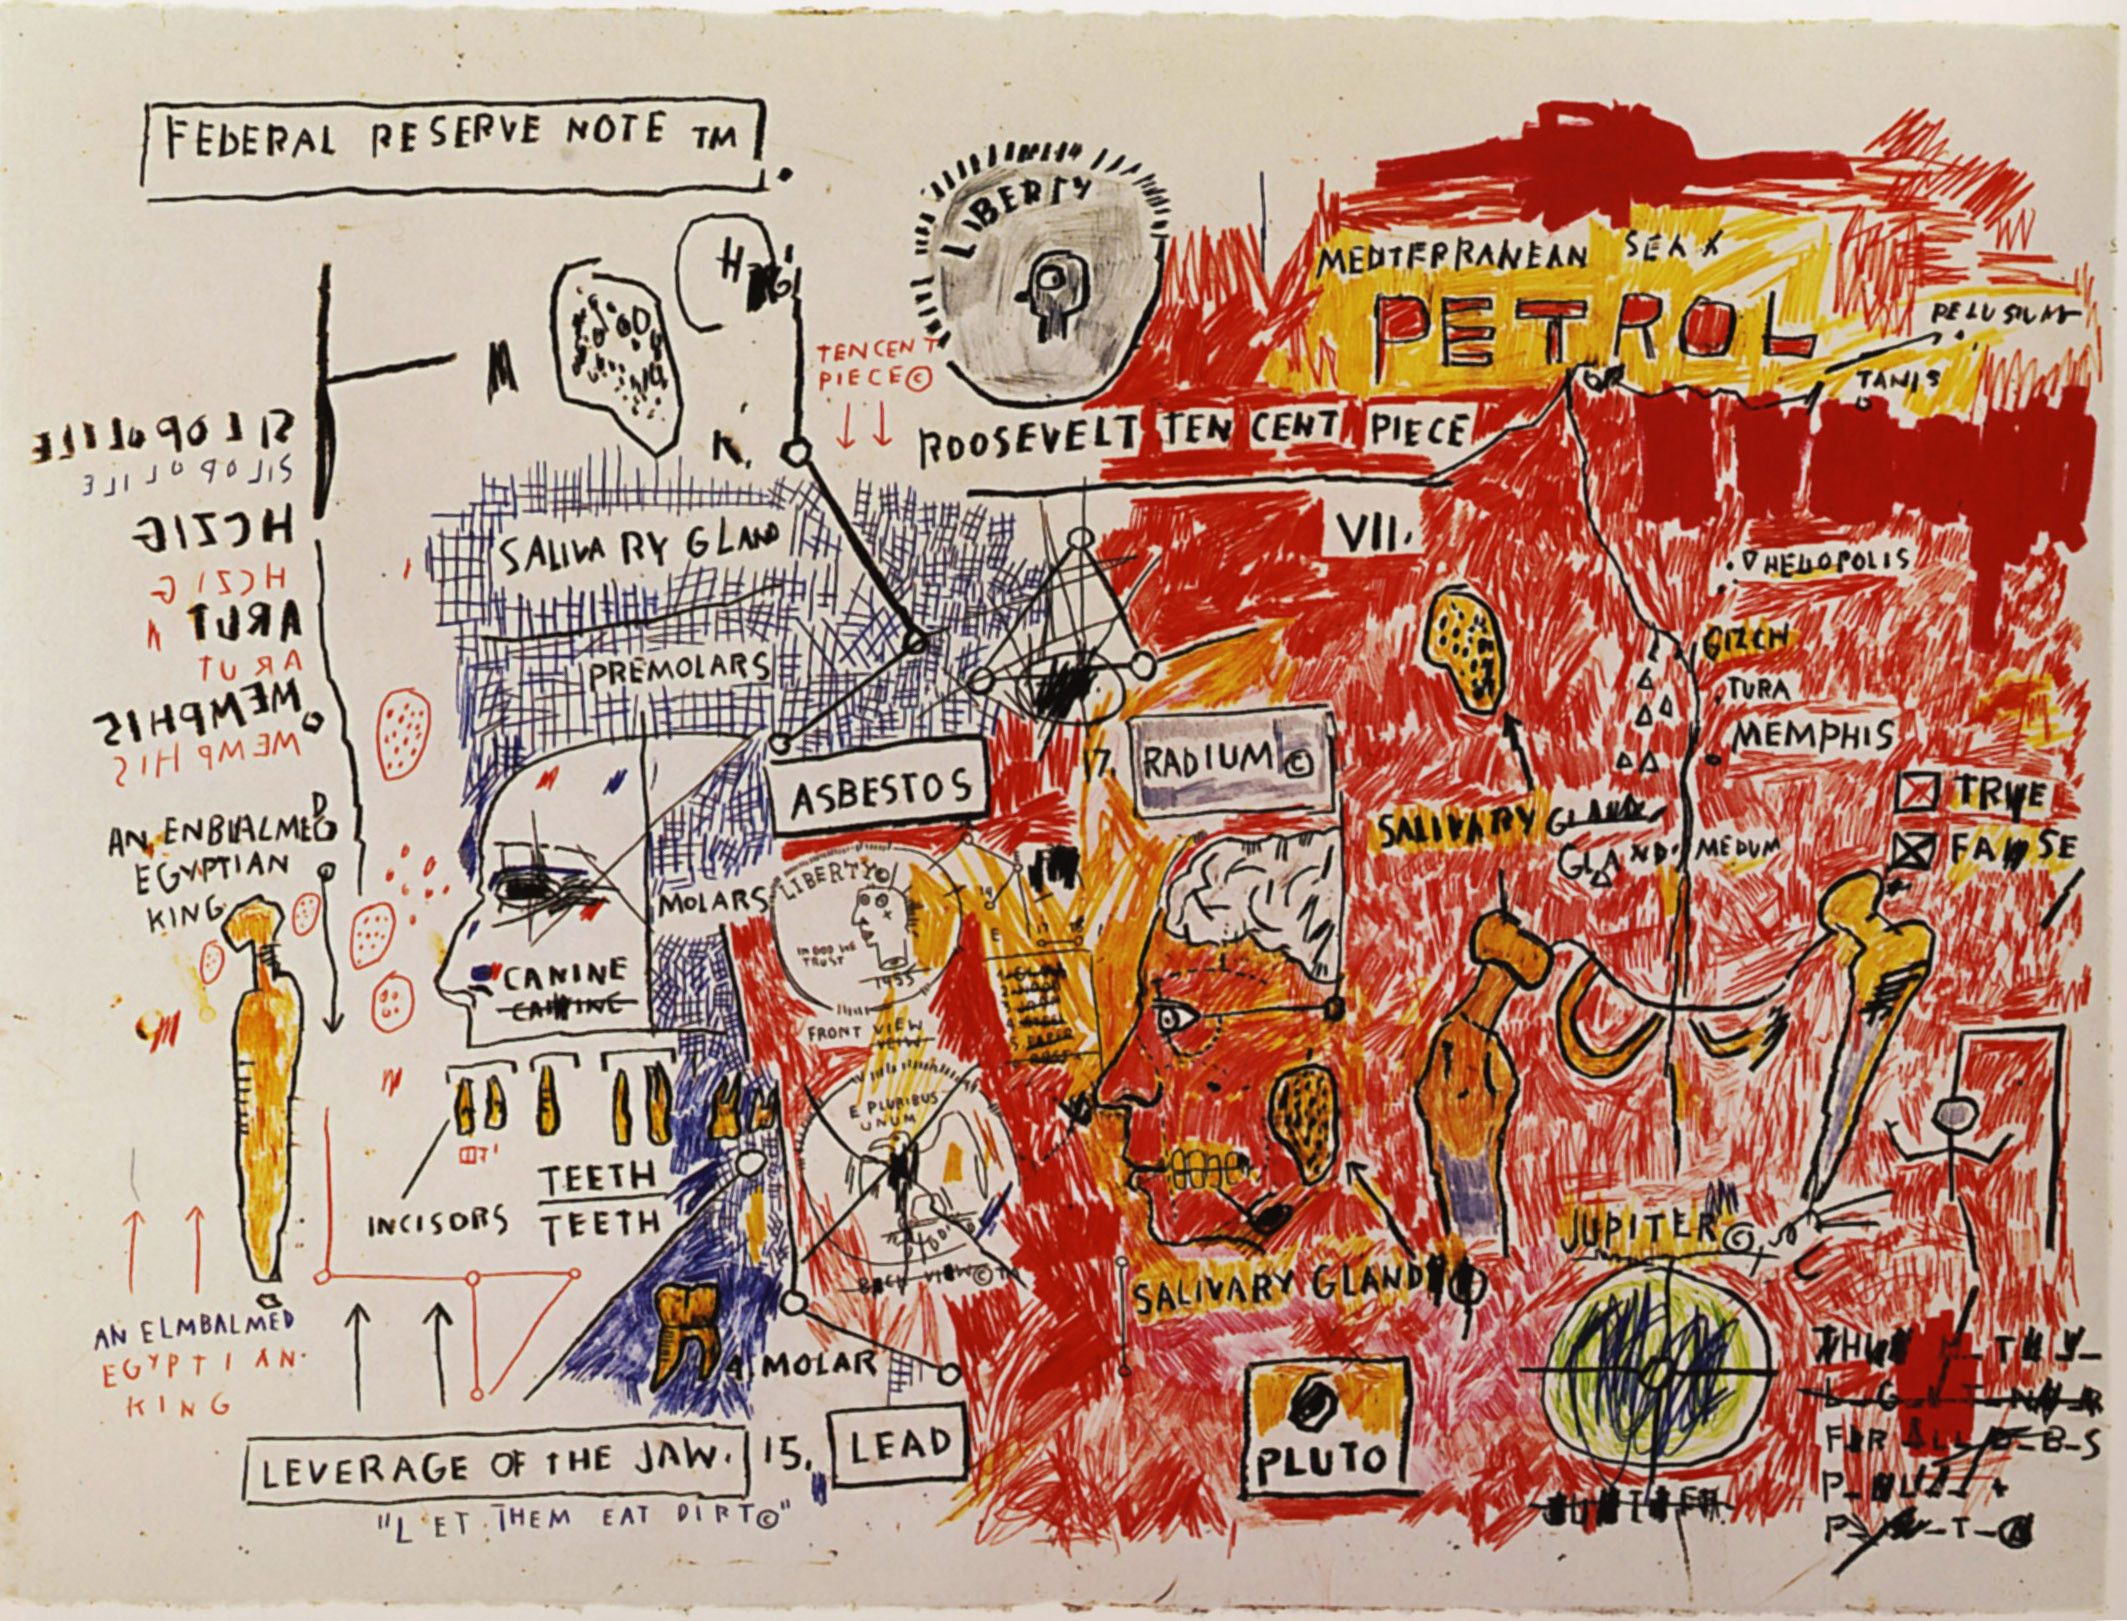 FEDERAL RESERVE NOTE TM.
LIBERTY
M
R.
TEN CENT
PIECE©
ROOSEVELT TEN CENT PIECE
MEDITERRANEAN SEA X
PETROL
PELUSIUM
TANIS
SILOPOLILE
SILOPOLILE
HCZIG
HCZIG
ARUT
ARUT
MEMPHIS
MEMPHIS
AN ENBLALMED
EGYPTIAN
KING
SALIVARY GLAND
PREMOLARS
VII.
HELIOPOLIS
GIZEH
TURA
MEMPHIS
ASBESTOS
17.
RADIUM ©
SALIVARY GLAND
GLAND.
MEDUM
TRUE
FALSE
MOLARS
CANINE
CANINE
LIBERTY©
IN GOD WE
TRUST
1955
FRONT VIEW
VIEW
E PLURIBUS
UNUM
BACK VIEW©TM
INCISORS
TEETH
TEETH
4. MOLAR
AN ELMBALMED
EGYPTIAN.
KING
SALIVARY GLAND
JUPITER©
PLUTO
JUPITER
LEVERAGE OF THE JAW. 15. LEAD
"LET THEM EAT DIRT©"